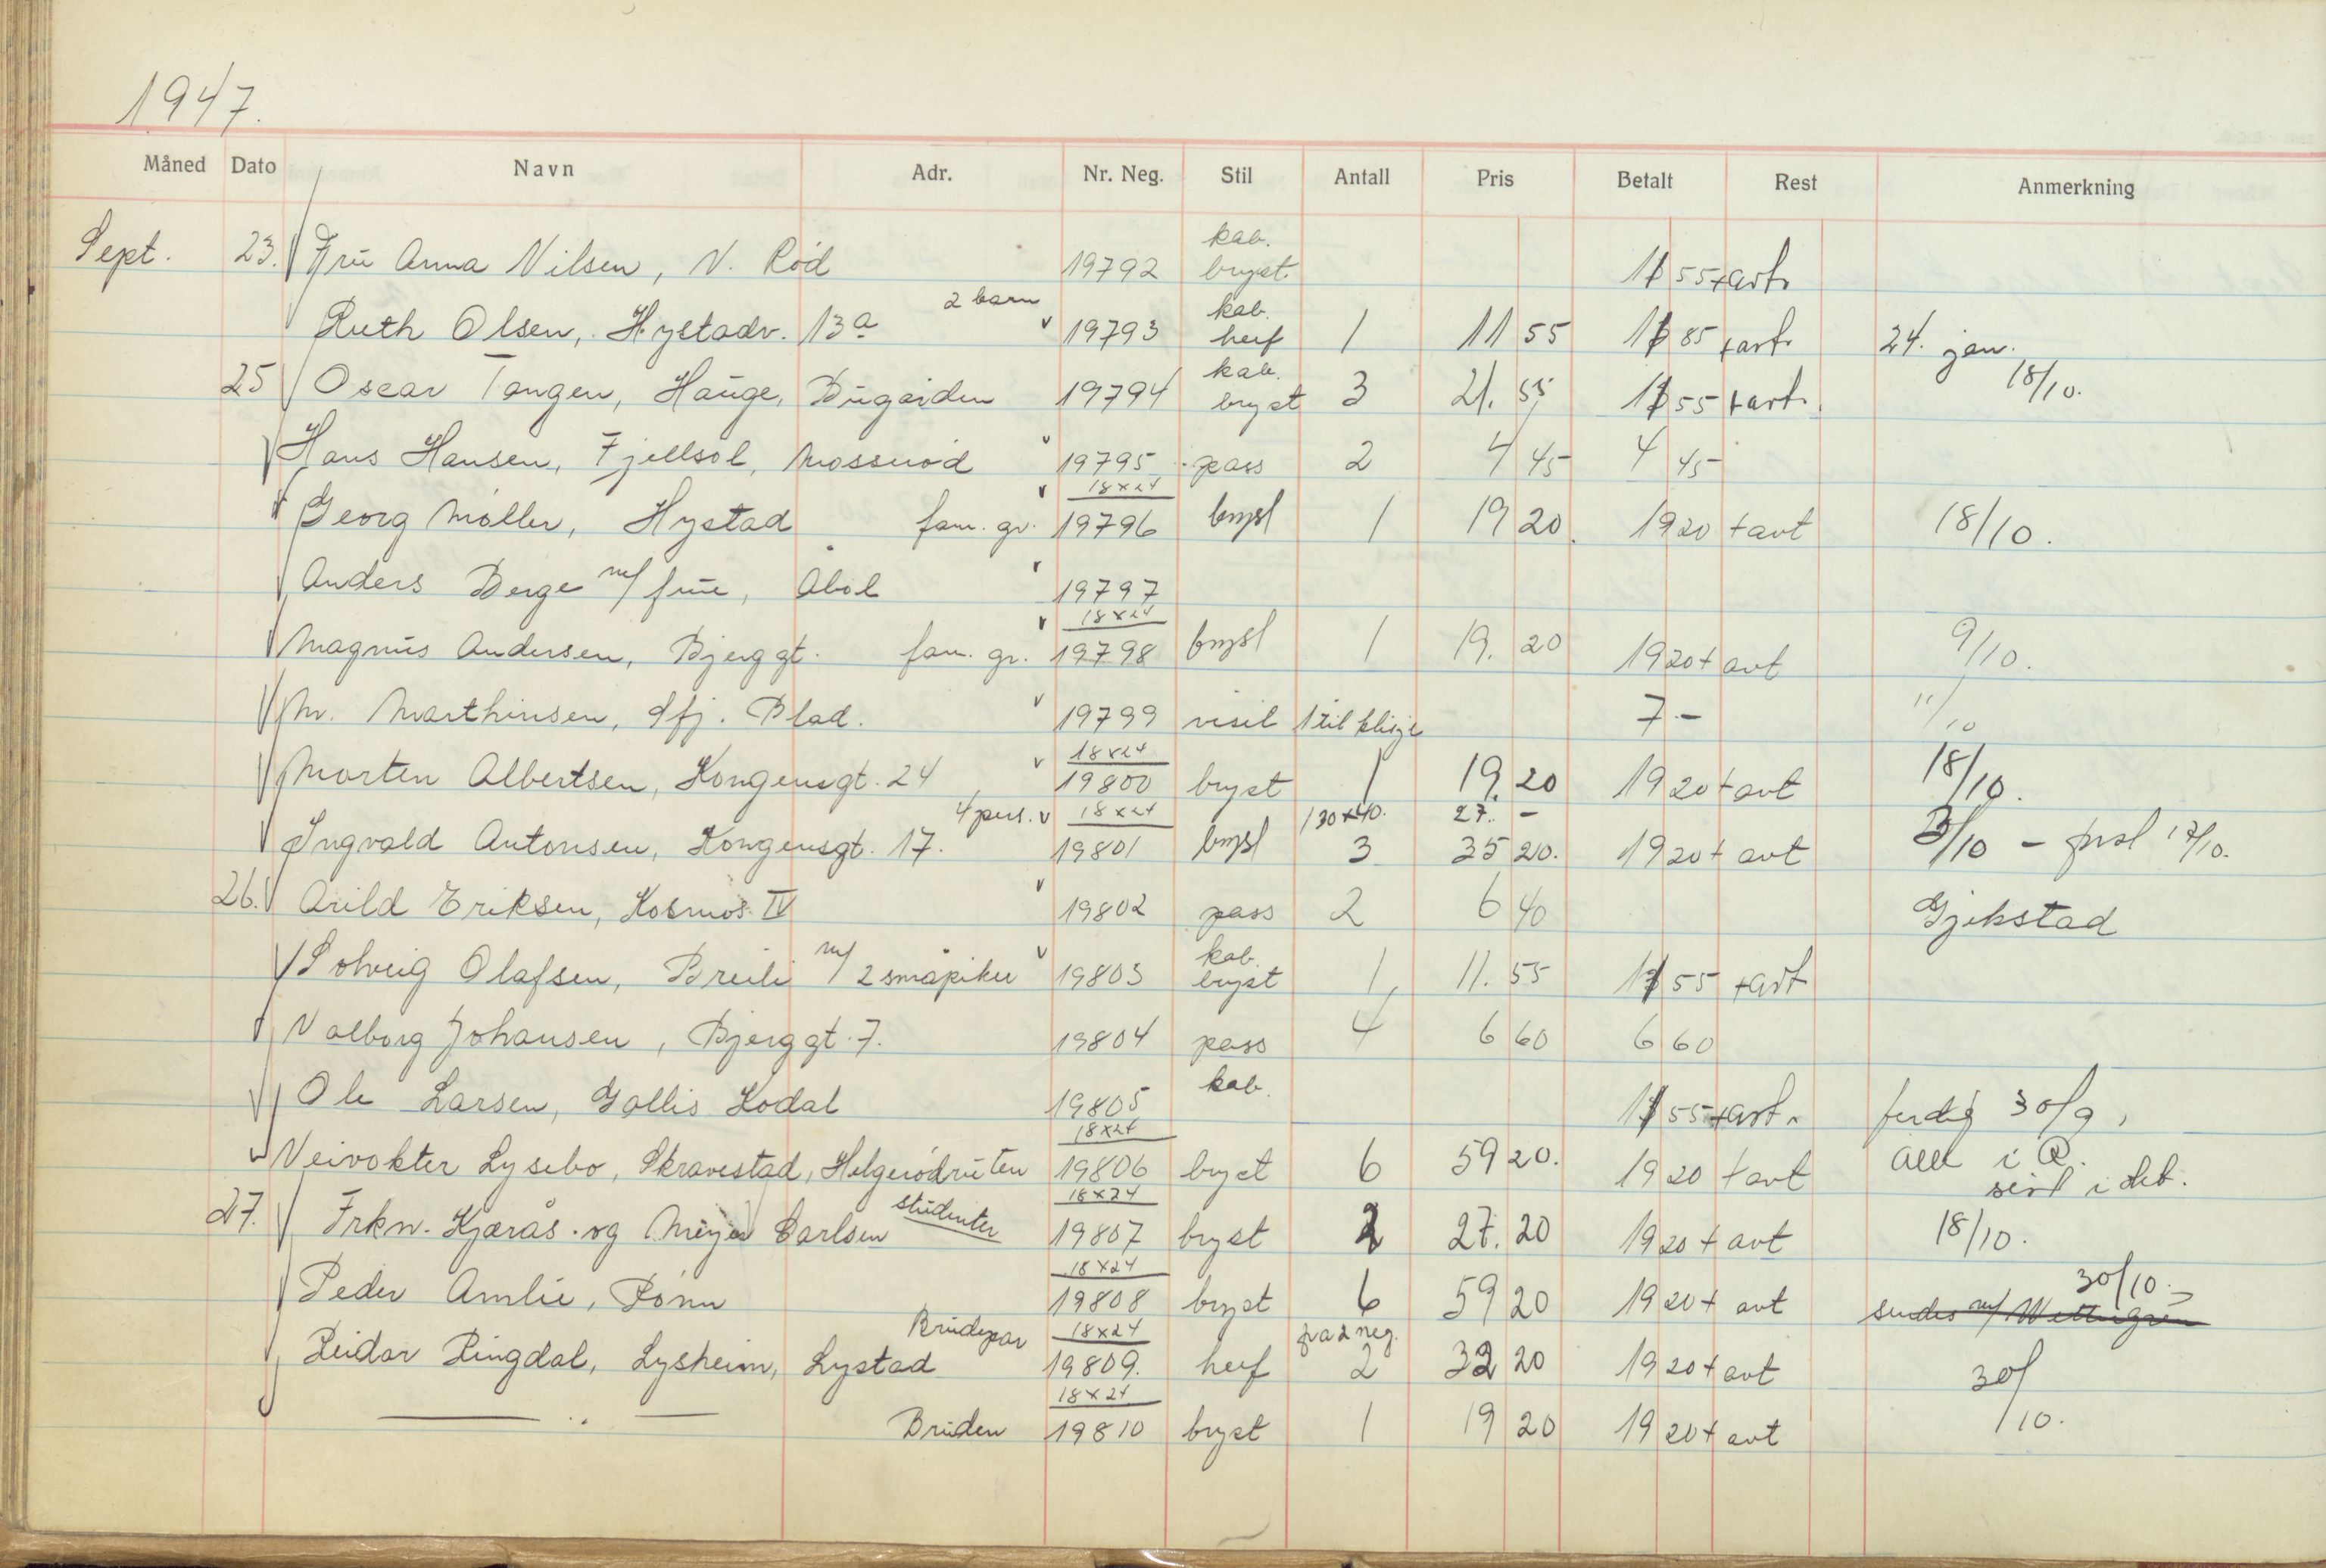 1947.
Måned Dato Navn Adr. Nr. Neg. Stil Antall Pris Betalt Rest Anmerkning
Sept. 23. Frü Anna Nilsen, N. Röd 19792 kab. bryst. 11 55 + avt.
Ruth Olsen, Hystadv. 13a 2 barn 19793 kab. helf 1 11 55 11 85 + avt. 24. jan.
25 Oscar Tangen, Haüge, Bügården 19794 kab. bryst 3 21. 55 11 55 + avt. 18/10.
Hans Hansen, Fjellsol, Mosserød 19795 pass 2 4 45 4 45
Georg Møller, Hystad fam. gr. 18x24 19796 bryst 1 19 20 19 20 + avt 18/10.
Anders Berge m/ früe, Åbol 19797
Magnüs Andersen, Bjerggt. fam. gr. 18x24 19798 bryst 1 19. 20 19 20 + avt 9/10.
M. Marthinsen, Sfj. Blad. 19799 visit 1 til klisje 7.- 11/10
Morten Albertsen, Kongensgt. 24 18x24 19800 bryst 1 19. 20 19 20 + avt 18/10.
4 pers. 18x24 1 30x40. 27. -
Ingvald Antonsen, Kongensgt. 17. 19801 bryst 3 35 20. 19 20 + avt 3/10 - 17/10.
26. Arild Eriksen, Kosmos IV 19802 pass 2 6 40 Gjekstad
Solveig Olafsen, Breili m/ 2 småpiker 19803 kab. bryst 1 11. 55 11 55 + avt
Valborg Johansen, Bjerggt. 7. 19804 pass 4 6 60 6 60
Ole Larsen, Gallis Kodal 19805 kab. 11 55 + avt. ferdig 30/9,
Veivokter Lysebo, Skravestad, Helgerødrüten 18x24 19806 bryst 6 59 20. 19 20 + avt alle i
27. Frkn. Kjærås og Carlsen stüdenter 18x24 19807 bryst 2 27. 20 19 20 + avt 18/10.
Peder Amlie, Rønn 18x24 19808 bryst 6 59 20 19 20 + avt 30/10. sendes m/
Reidar Ringdal, Lysheim, Lystad Brüdepar 18x24 19809. helf fra 2 neg. 2 32 20 19 20 + avt 30/10.
— .. — Brüden 18x24 19810 bryst 1 19 20 19 20 + avt